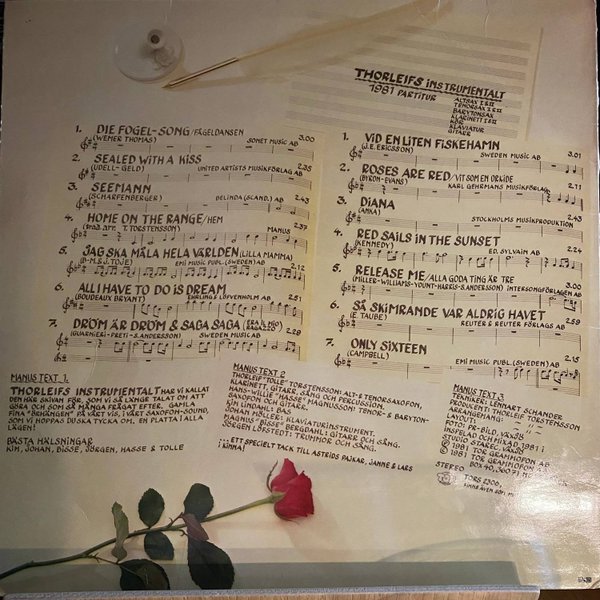 THORLEIFS INSTRUMENTALT
1981 PARTITUR
ALTSAX I & II
TENORSAX I & II
BARYTONSAX
KLARINETT I & II
KLAVIATUR
GITARR
1. DIE FOGEL-SONG/FÅGELDANSEN
(WERNER THOMAS) SONET MUSIC AB 3.00
2. SEALED WITH A KISS
(UDELL-GELD) UNITED ARTISTS MUSIKFÖRLAG 2.35
3. SEEMANN
(SCHARFENBERGER) BELINDA (SCAND.) AB 2.43
4. HOME ON THE RANGE/HEM
(TRAD. ARR. T. TORSTENSSON) MANUS 2.37
5. JAG SKA MÅLA HELA VÄRLDEN (LILLA MAMMA)
EMI MUSIC PUBL. (SWEDEN) AB 2.12
6. ALL I HAVE TO DO IS DREAM
(BOUDEAUX BRYANT) EHRLING & LÖFVENHOLM AB 2.51
7. DRÖM ÄR DRÖM & SAGA SAGA
(GUARNIERI-PRETI-S. ANDERSSON) SWEDEN MUSIC AB 2.59
1. VID EN LITEN FISKEHAMN
(J.E. ERICSSON) SWEDEN MUSIC AB 3.01
2. ROSES ARE RED/VIT SOM EN ORKIDÉ
(BYRON-EVANS) KARL GEHRMANS MUSIKFÖRLAG 2.11
3. DIANA
(ANKA) STOCKHOLMS MUSIKPRODUKTION 2.43
4. RED SAILS IN THE SUNSET
(KENNEDY) ED. SYLVAIN AB 2.23
5. RELEASE ME/ALLA GODA TING ÄR TRE
(MILLER-WILLIAMS-YOUNT-HARRIS-S. ANDERSSON) INTERSONGFÖRLAGEN AB 3.00
6. SÅ SKIMRANDE VAR ALDRIG HAVET
(E. TAUBE) REUTER & REUTER FÖRLAGS AB 2.28
7. ONLY SIXTEEN
(CAMPBELL) EMI MUSIC PUBL (SWEDEN) AB 2.15
MANUS TEXT 1.
THORLEIFS INSTRUMENTALT HAR VI KALLAT
DEN HÄR SKIVAN FÖR, SOM VI SÅ LÄNGE TALAT OM ATT
GÖRA OCH SOM SÅ MÅNGA FRÅGAT EFTER. GAMLA,
FINA "ÖRHÄNGEN" PÅ VÅRT VIS, I VÅRT SAXOFON-SOUND,
SOM VI HOPPAS DU SKA TYCKA OM. EN PLATTA I ALLA
LÄGEN!
BÄSTA HÄLSNINGAR
KIM, JOHAN, BISSE, JÖRGEN, HASSE & TOLLE
MANUS TEXT 2
THORLEIF "TOLLE" TORSTENSSON: ALT- & TENORSAXOFON,
KLARINETT, GITARR, SÅNG OCH PERCUSSION.
HANS-WILLIE "HASSE" MAGNUSSON: TENOR- & BARYTON-
SAXOFON OCH GITARR.
KIM LINDAHL: BAS
JOHAN NEIJ: KLAVIATURINSTRUMENT.
MAGNUS "BISSE" BERGDAHL: GITARR OCH SÅNG.
JÖRGEN LÖFSTEDT: TRUMMOR OCH SÅNG.
ETT SPECIELLT TACK TILL ASTRIDS POJKAR, JANNE & LARS
MANUS TEXT 3
TEKNIKER: LENNART SCHANDER
PRODUCENT: THORLEIF TORSTENSSON
ARRANGEMANG:
LAYOUT:
FOTO: PR-BILD, VÄXJÖ
INSPELAD OCH MIXAD 1981 I
STUDIO STAREC, VÄXJÖ
℗ 1981 TOR GRAMMOFON AB
© 1981 TOR GRAMMOFON AB
BOX 40, 360 71
STEREO TORS 2306,
FINNS ÄVEN SOM